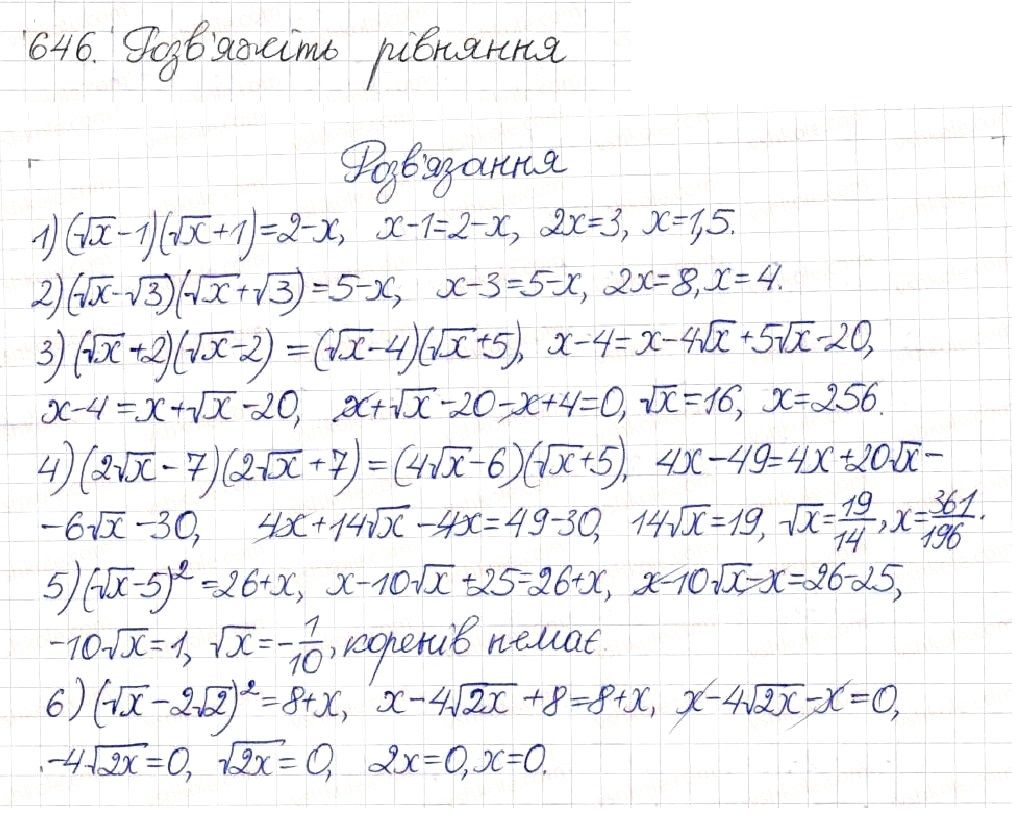 646. Розв'яжіть рівняння
Розв'язання
1) (√x - 1)(√x + 1) = 2 - x, x - 1 = 2 - x, 2x = 3, x = 1,5.
2) (√x - √3)(√x + √3) = 5 - x, x - 3 = 5 - x, 2x = 8, x = 4.
3) (√x + 2)(√x - 2) = (√x - 4)(√x + 5), x - 4 = x - 4√x + 5√x - 20,
x - 4 = x + √x - 20, x + √x - 20 - x + 4 = 0, √x = 16, x = 256.
4) (2√x - 7)(2√x + 7) = (4√x - 6)(√x + 5), 4x - 49 = 4x + 20√x -
- 6√x - 30, 4x + 14√x - 4x = 49 - 30, 14√x = 19, √x = 19/14, x = 361/196.
5) (√x - 5)² = 26 + x, x - 10√x + 25 = 26 + x, x - 10√x - x = 26 - 25,
-10√x = 1, √x = -1/10, коренів немає.
6) (√x - 2√2)² = 8 + x, x - 4√2x + 8 = 8 + x, x - 4√2x - x = 0,
-4√2x = 0, √2x = 0, 2x = 0, x = 0.